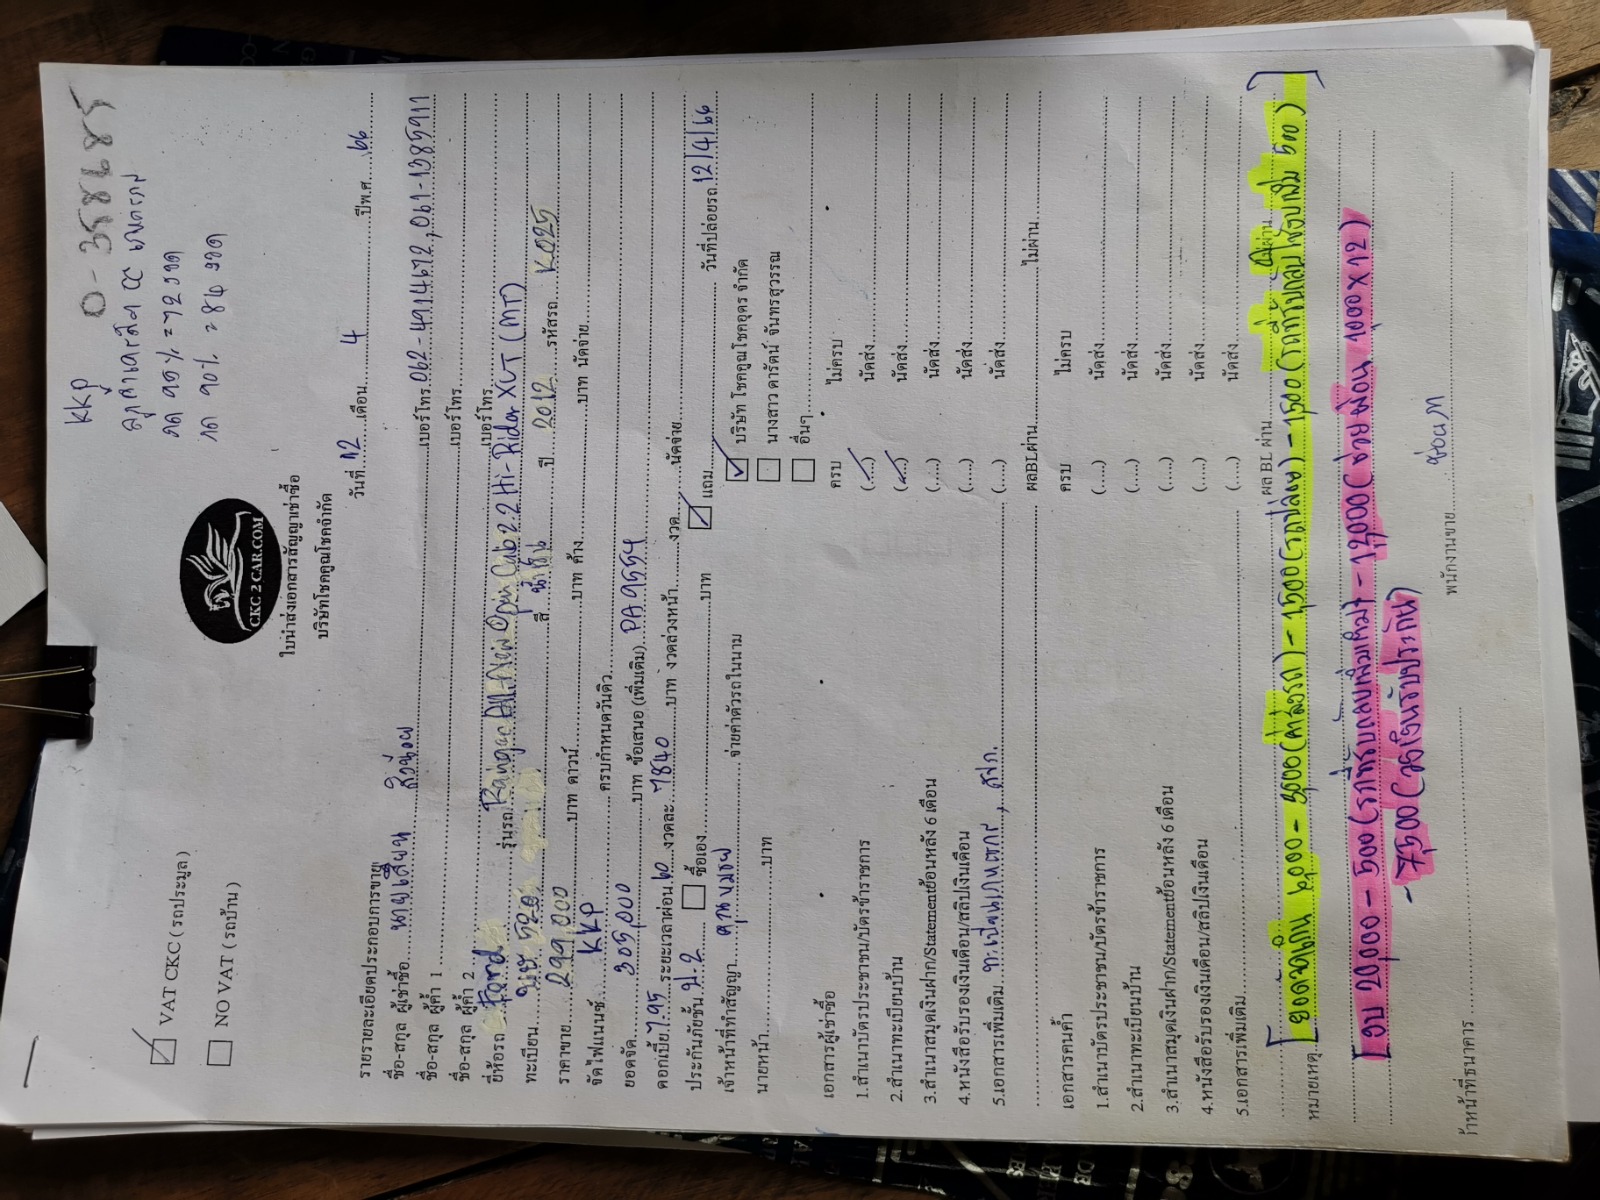 KKP
0-358685
ลด 95% = 72 งวด
ลด 90% = 84 งวด
VAT CKC ( รถประมูล )
NO VAT ( รถบ้าน )
CKC 2 CAR.COM
ใบนำส่งเอกสารสัญญาเช่าซื้อ
บริษัทโชคคูณโชคจำกัด
วันที่ 12 เดือน 4 ปีพ.ศ. 66
รายรายละเอียดประกอบการขาย
ชื่อ-สกุล ผู้เช่าซื้อ เบอร์โทร. 062-4914672, 061-1385911
ชื่อ-สกุล ผู้ค้ำ 1 เบอร์โทร.
ชื่อ-สกุล ผู้ค้ำ 2 เบอร์โทร
ยี่ห้อรถ Ford รุ่นรถ Ranger All-New Open Cab 2.2 Hi-Rider XLT (MT)
ทะเบียน 520 สี น้ำเงิน ปี 2012 รหัสรถ K025
ราคาขาย 299,000 บาท ดาวน์ บาท ค้าง บาท นัดจ่าย
จัดไฟแนนซ์ KKP ครบกำหนดวันดิว
ยอดจัด 305,000 บาท ข้อเสนอ (เพิ่มเติม) PA 9554
ดอกเบี้ย 7.95 ระยะเวลาผ่อน 60 งวดละ 7840 บาท งวดล่วงหน้า งวด นัดจ่าย
ประกันภัยชั้น ป.2 ซื้อเอง บาท แถม วันที่ปล่อยรถ 12/4/66
เจ้าหน้าที่ทำสัญญา จ่ายค่าตัวรถในนาม บริษัท โชคคูณโชคอุดร จำกัด
นายหน้า บาท นางสาว ดารัตน์ จันทรสุวรรณ
อื่นๆ
เอกสารผู้เช่าซื้อ ครบ ไม่ครบ
1.สำเนาบัตรประชาชน/บัตรข้าราชการ (....) นัดส่ง
2.สำเนาทะเบียนบ้าน (....) นัดส่ง
3.สำเนาสมุดเงินฝาก/Statementย้อนหลัง 6 เดือน (....) นัดส่ง
4.หนังสือรับรองเงินเดือน/สลิปเงินเดือน (....) นัดส่ง
5.เอกสารเพิ่มเติม ทะเบียนเกษตรกร, (....) นัดส่ง
ผลBLผ่าน ไม่ผ่าน
เอกสารคนค้ำ ครบ ไม่ครบ
1.สำเนาบัตรประชาชน/บัตรข้าราชการ (....) นัดส่ง
2.สำเนาทะเบียนบ้าน (....) นัดส่ง
3.สำเนาสมุดเงินฝาก/Statementย้อนหลัง 6 เดือน (....) นัดส่ง
4.หนังสือรับรองเงินเดือน/สลิปเงินเดือน (....) นัดส่ง
5.เอกสารเพิ่มเติม (....) นัดส่ง
ผล BL ผ่าน ไม่ผ่าน
หมายเหตุ. 6,000 - 3,000 - 1,500 - 1,500
งบ 20,000 - 500 - 12,000 (ช่วยผ่อน 1000 x 12)
- 7,500
เจ้าหน้าที่ธนาคาร พนักงานขาย